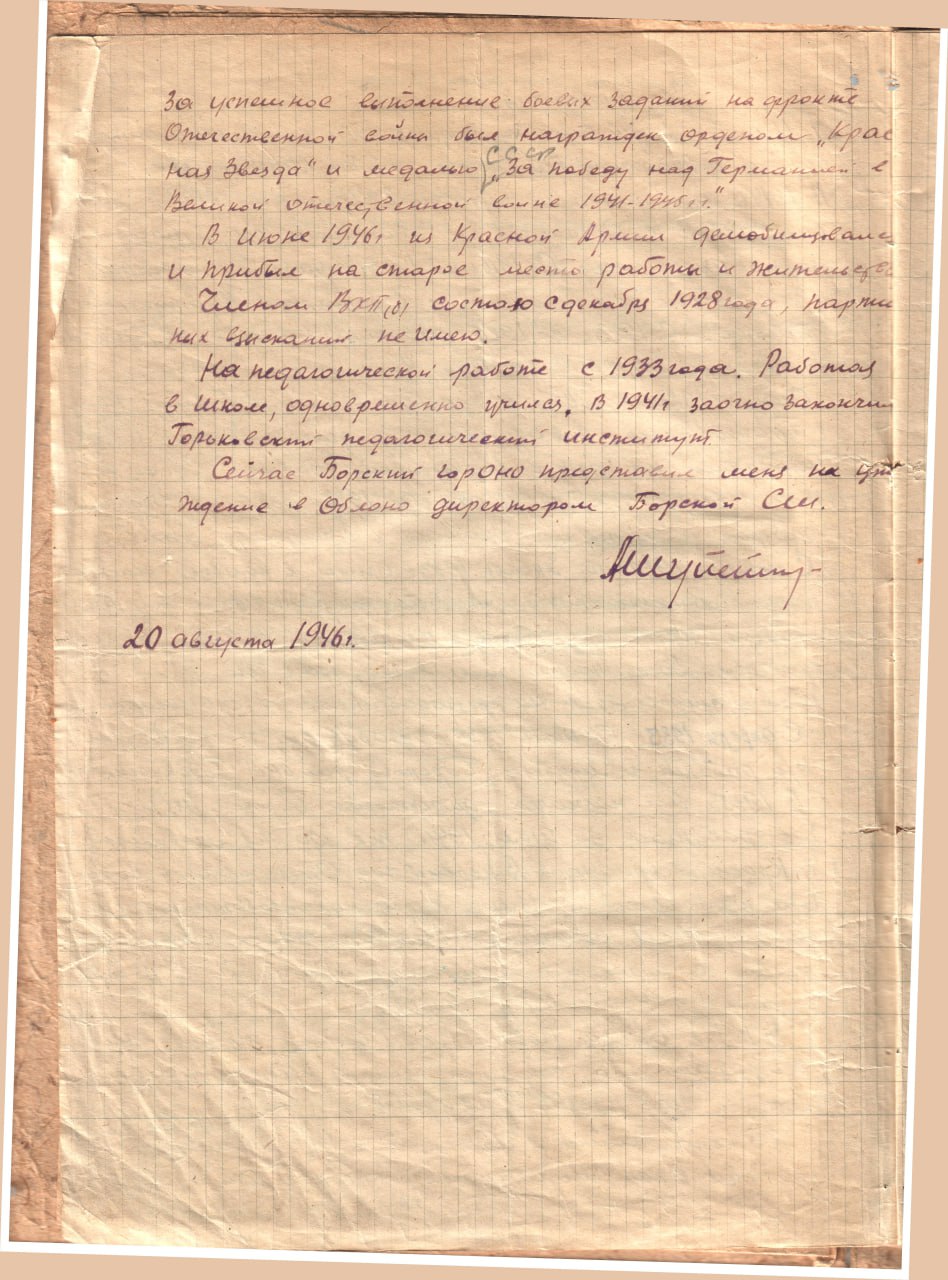 За успешное выполнение боевых заданий на фронте
Отечественной войны был награжден орденом „Крас
ная Звезда" и медалью СССР „За победу над Германией в
Великой отечественной воине 1941-1945 г.г."
В июне 1946г из Красной Армии демобилизовался
и прибыл на старое место работы и жительства
Членом ВКП(б) состою с декабря 1928 года, партий
ных взысканий не имею.
На педагогической работе с 1933 года. Работая
в школе, одновременно учился. В 1941г заочно закончил
Горьковский педагогический институт
Сейчас Борский гороно представил меня на утвер
ждение в Облоно директором Борской СШ.
20 августа 1946г.